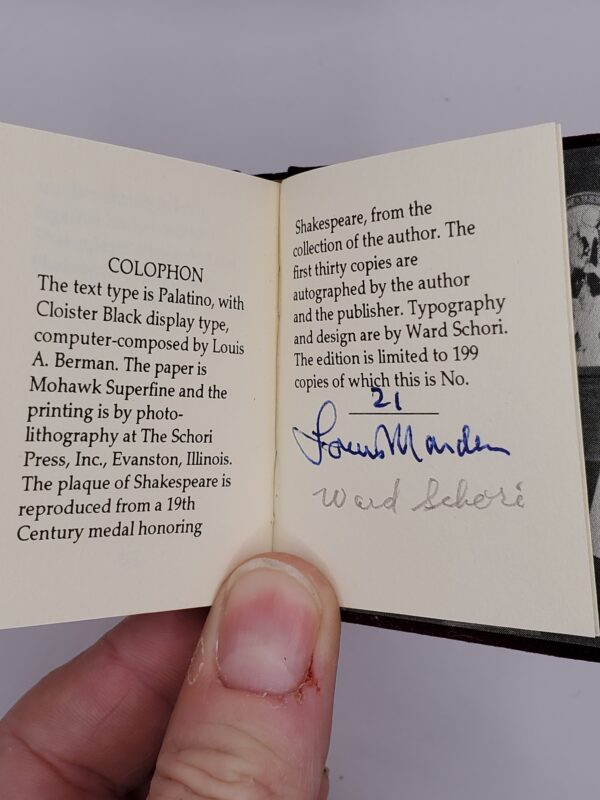 COLOPHON
The text type is Palatino, with
Cloister Black display type,
computer-composed by Louis
A. Berman. The paper is
Mohawk Superfine and the
printing is by photo-
lithography at The Schori
Press, Inc., Evanston, Illinois.
The plaque of Shakespeare is
reproduced from a 19th
Century medal honoring
Shakespeare, from the
collection of the author. The
first thirty copies are
autographed by the author
and the publisher. Typography
and design are by Ward Schori.
The edition is limited to 199
copies of which this is No.
21
Louis Marder
Ward Schori